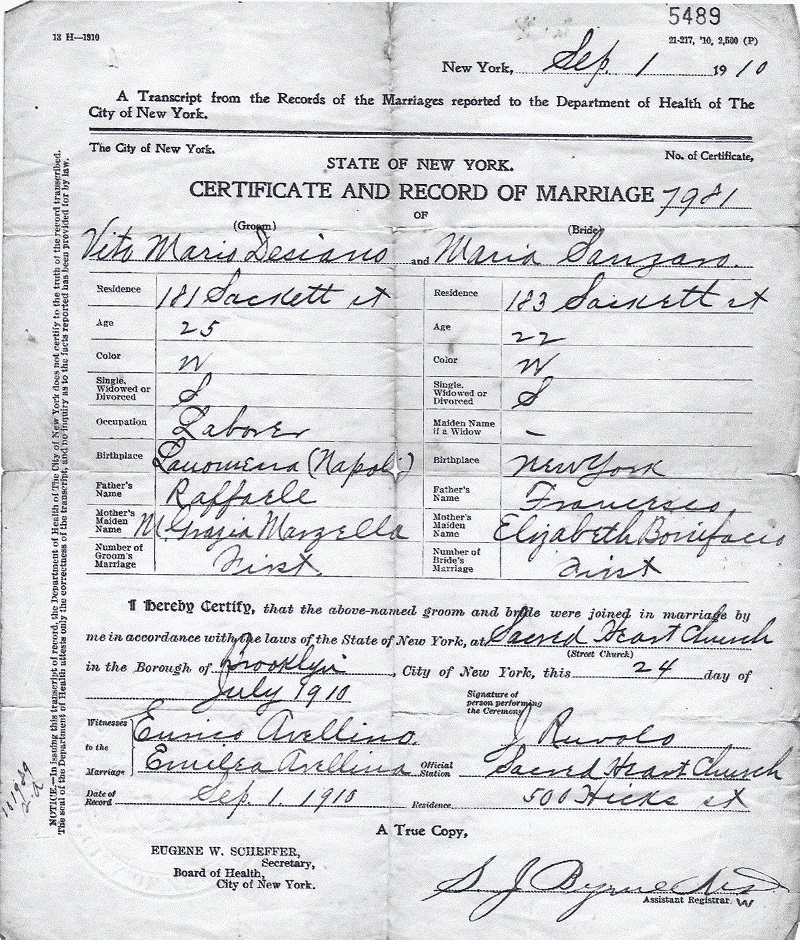 5489
13 H—1910
21-217, '10, 2,500 (P)
New York, Sep. 1 1910
A Transcript from the Records of the Marriages reported to the Department of Health of The
City of New York.
The City of New York.
No. of Certificate,
STATE OF NEW YORK.
CERTIFICATE AND RECORD OF MARRIAGE 7981
OF
(Groom) (Bride)
Vito Mario Desiano and Maria Sanzaro.
Residence 181 Sackett st Residence 183 Sackett st
Age 25 Age 22
Color W Color W
Single, Widowed or Divorced S Single, Widowed or Divorced S
Occupation Laborer Maiden Name if a Widow —
Birthplace (Napoli) Birthplace New York
Father's Name Raffaele Father's Name
Mother's Maiden Name M Grazia Marzella Mother's Maiden Name Elizabeth Bonifacio
Number of Groom's Marriage First. Number of Bride's Marriage First
I hereby Certify, that the above-named groom and bride were joined in marriage by
me in accordance with the laws of the State of New York, at Sacred Heart Church
(Street Church)
in the Borough of Brooklyn, City of New York, this 24 day of
July 1910
Signature of person performing the Ceremony J Ruvolo
Witnesses to the Marriage
Avellino.
Avellina Official Station Sacred Heart Church
Date of Record Sep. 1. 1910 Residence. 500 Hicks st
A True Copy,
EUGENE W. SCHEFFER,
Secretary,
Board of Health,
City of New York.
S. J. Byrne
Assistant Registrar. W
NOTICE.—In issuing this transcript of record, the Department of Health of The City of New York does not certify to the truth of the record transcribed.
The seal of the Department of Health attests only the correctness of the transcript, and no inquiry as to the facts reported has been provided for by law.